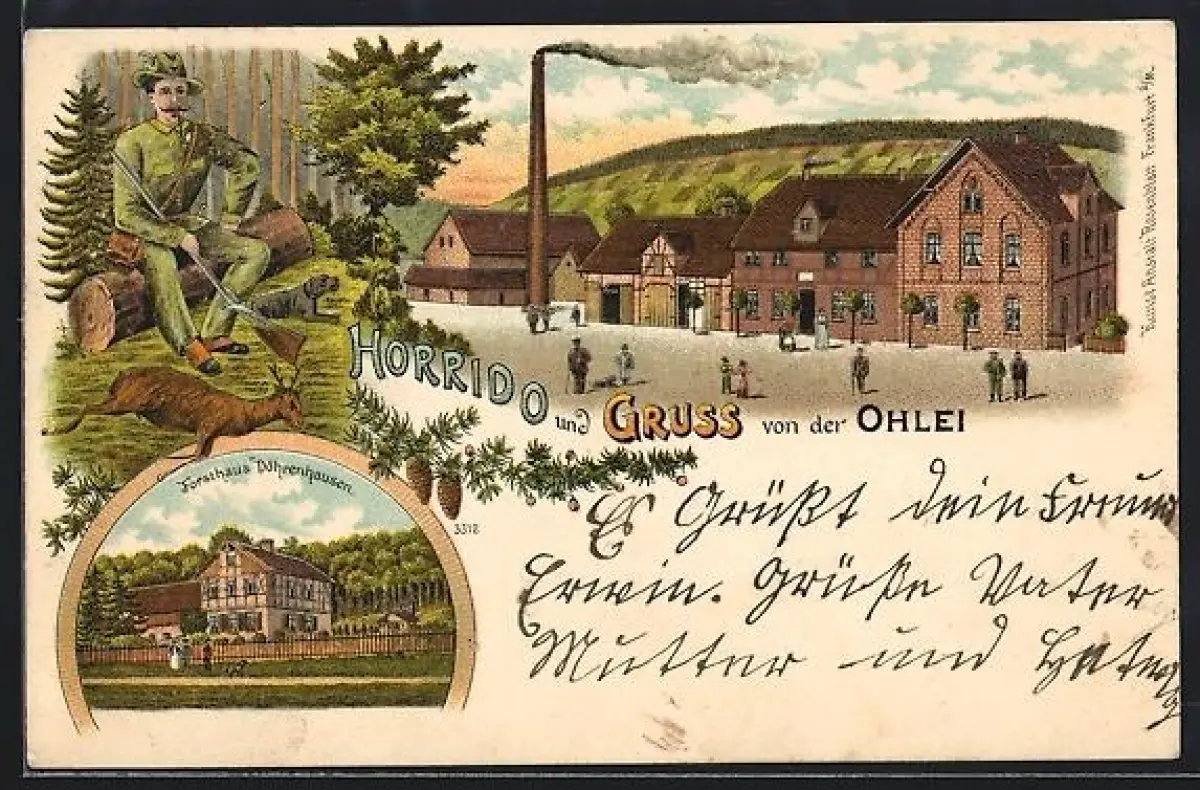 HORRIDO und GRUSS von der OHLEI
Forsthaus Döhrenhausen.
3312
Kunst Anstalt Rosenblatt Frankfurt a/M.
Es Grüßt dein Freund
Erwin. Grüße Vater
Mutter und